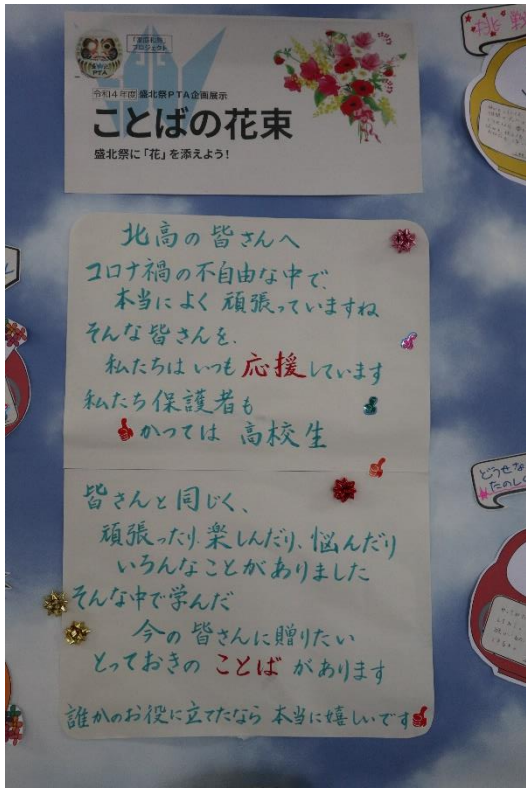 プロジェクト
PTA
令和4年度 盛北祭PTA企画展示
ことばの花束
盛北祭に「花」を添えよう!
北高の皆さんへ
コロナ禍の不自由な中で、
本当によく頑張っていますね
そんな皆さんを、
私たちはいつも応援しています
私たち保護者も
かつては 高校生
皆さんと同じく、
頑張ったり、楽しんだり、悩んだり
いろんなことがありました
そんな中で学んだ
今の皆さんに贈りたい
とっておきの ことば があります
誰かのお役に立てたなら 本当に嬉しいです
どうせな
たのしく